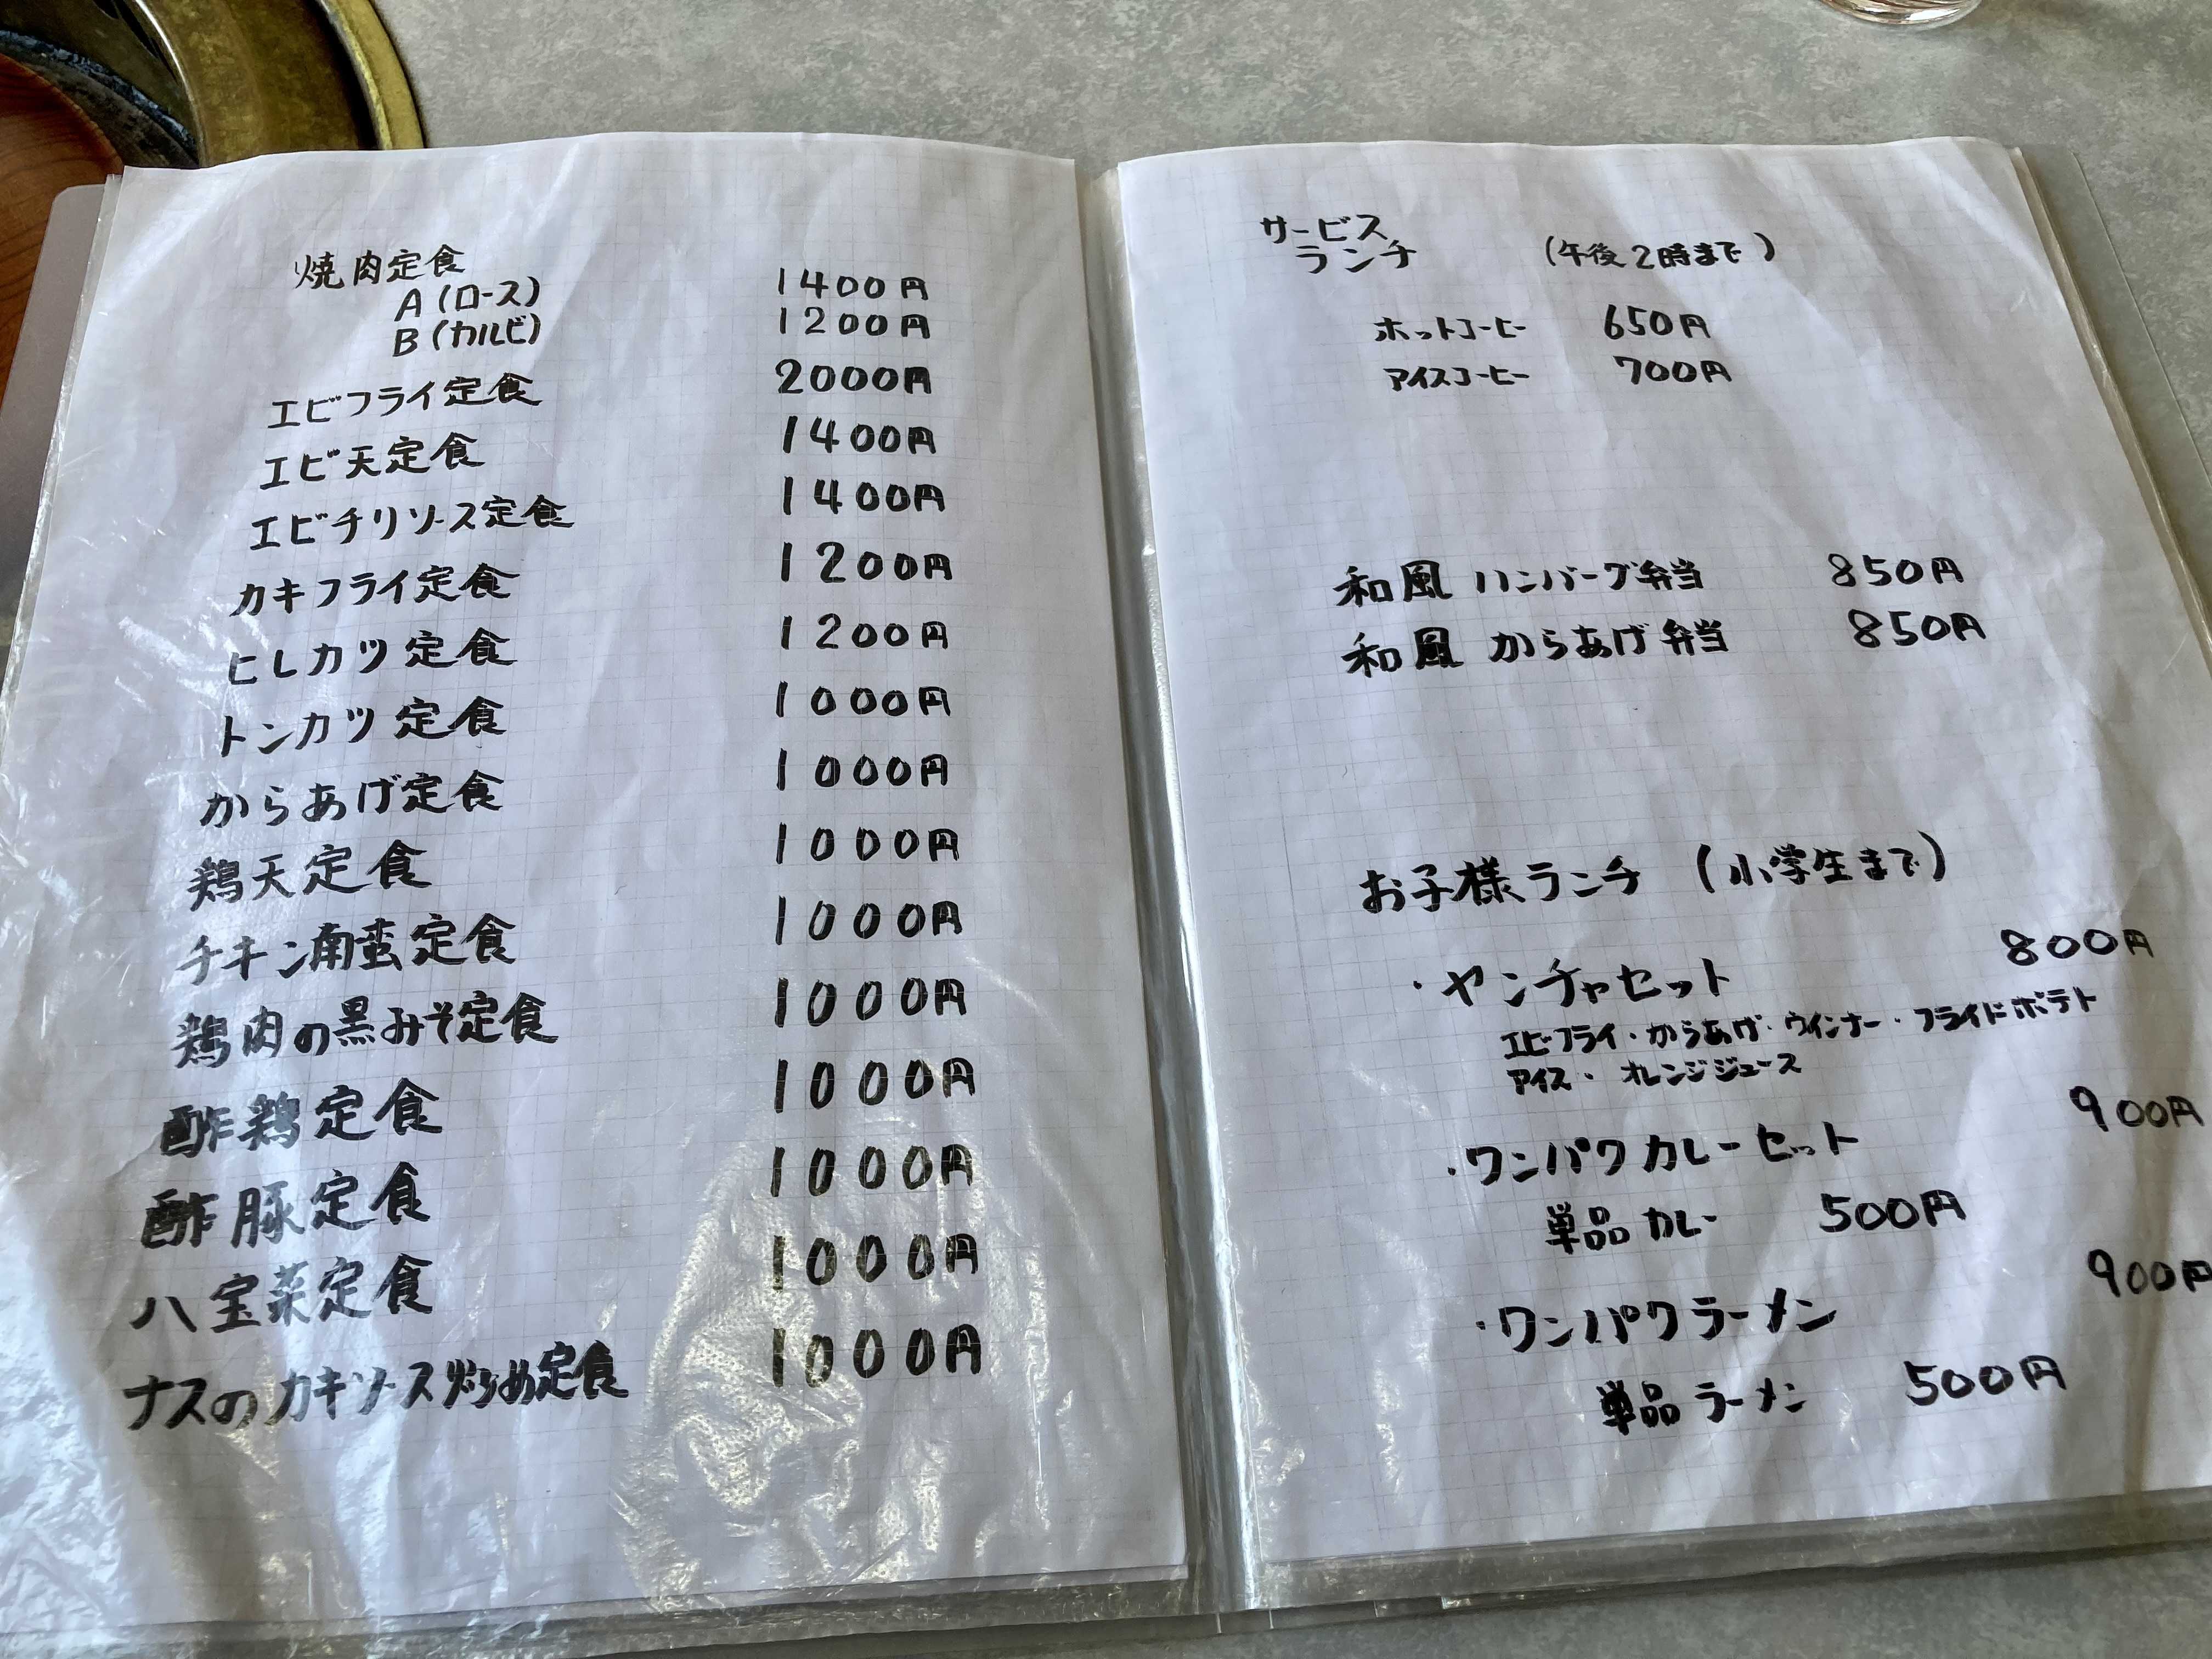 焼肉定食
A(ロース) 1400円
B(カルビ) 1200円
エビフライ定食 2000円
エビ天定食 1400円
エビチリソース定食 1400円
カキフライ定食 1200円
ヒレカツ定食 1200円
トンカツ定食 1000円
からあげ定食 1000円
鶏天定食 1000円
チキン南蛮定食 1000円
鶏肉の黒みそ定食 1000円
酢鶏定食 1000円
酢豚定食 1000円
八宝菜定食 1000円
ナスのカキソース炒め定食 1000円
サービス
ランチ (午後2時まで)
ホットコーヒー 650円
アイスコーヒー 700円
和風ハンバーグ弁当 850円
和風からあげ弁当 850円
お子様ランチ (小学生まで)
・ヤンチャセット 800円
エビフライ・からあげ・ウインナー・フライドポテト
アイス・オレンジジュース
・ワンパクカレーセット 900円
単品カレー 500円
・ワンパクラーメン 900円
単品ラーメン 500円